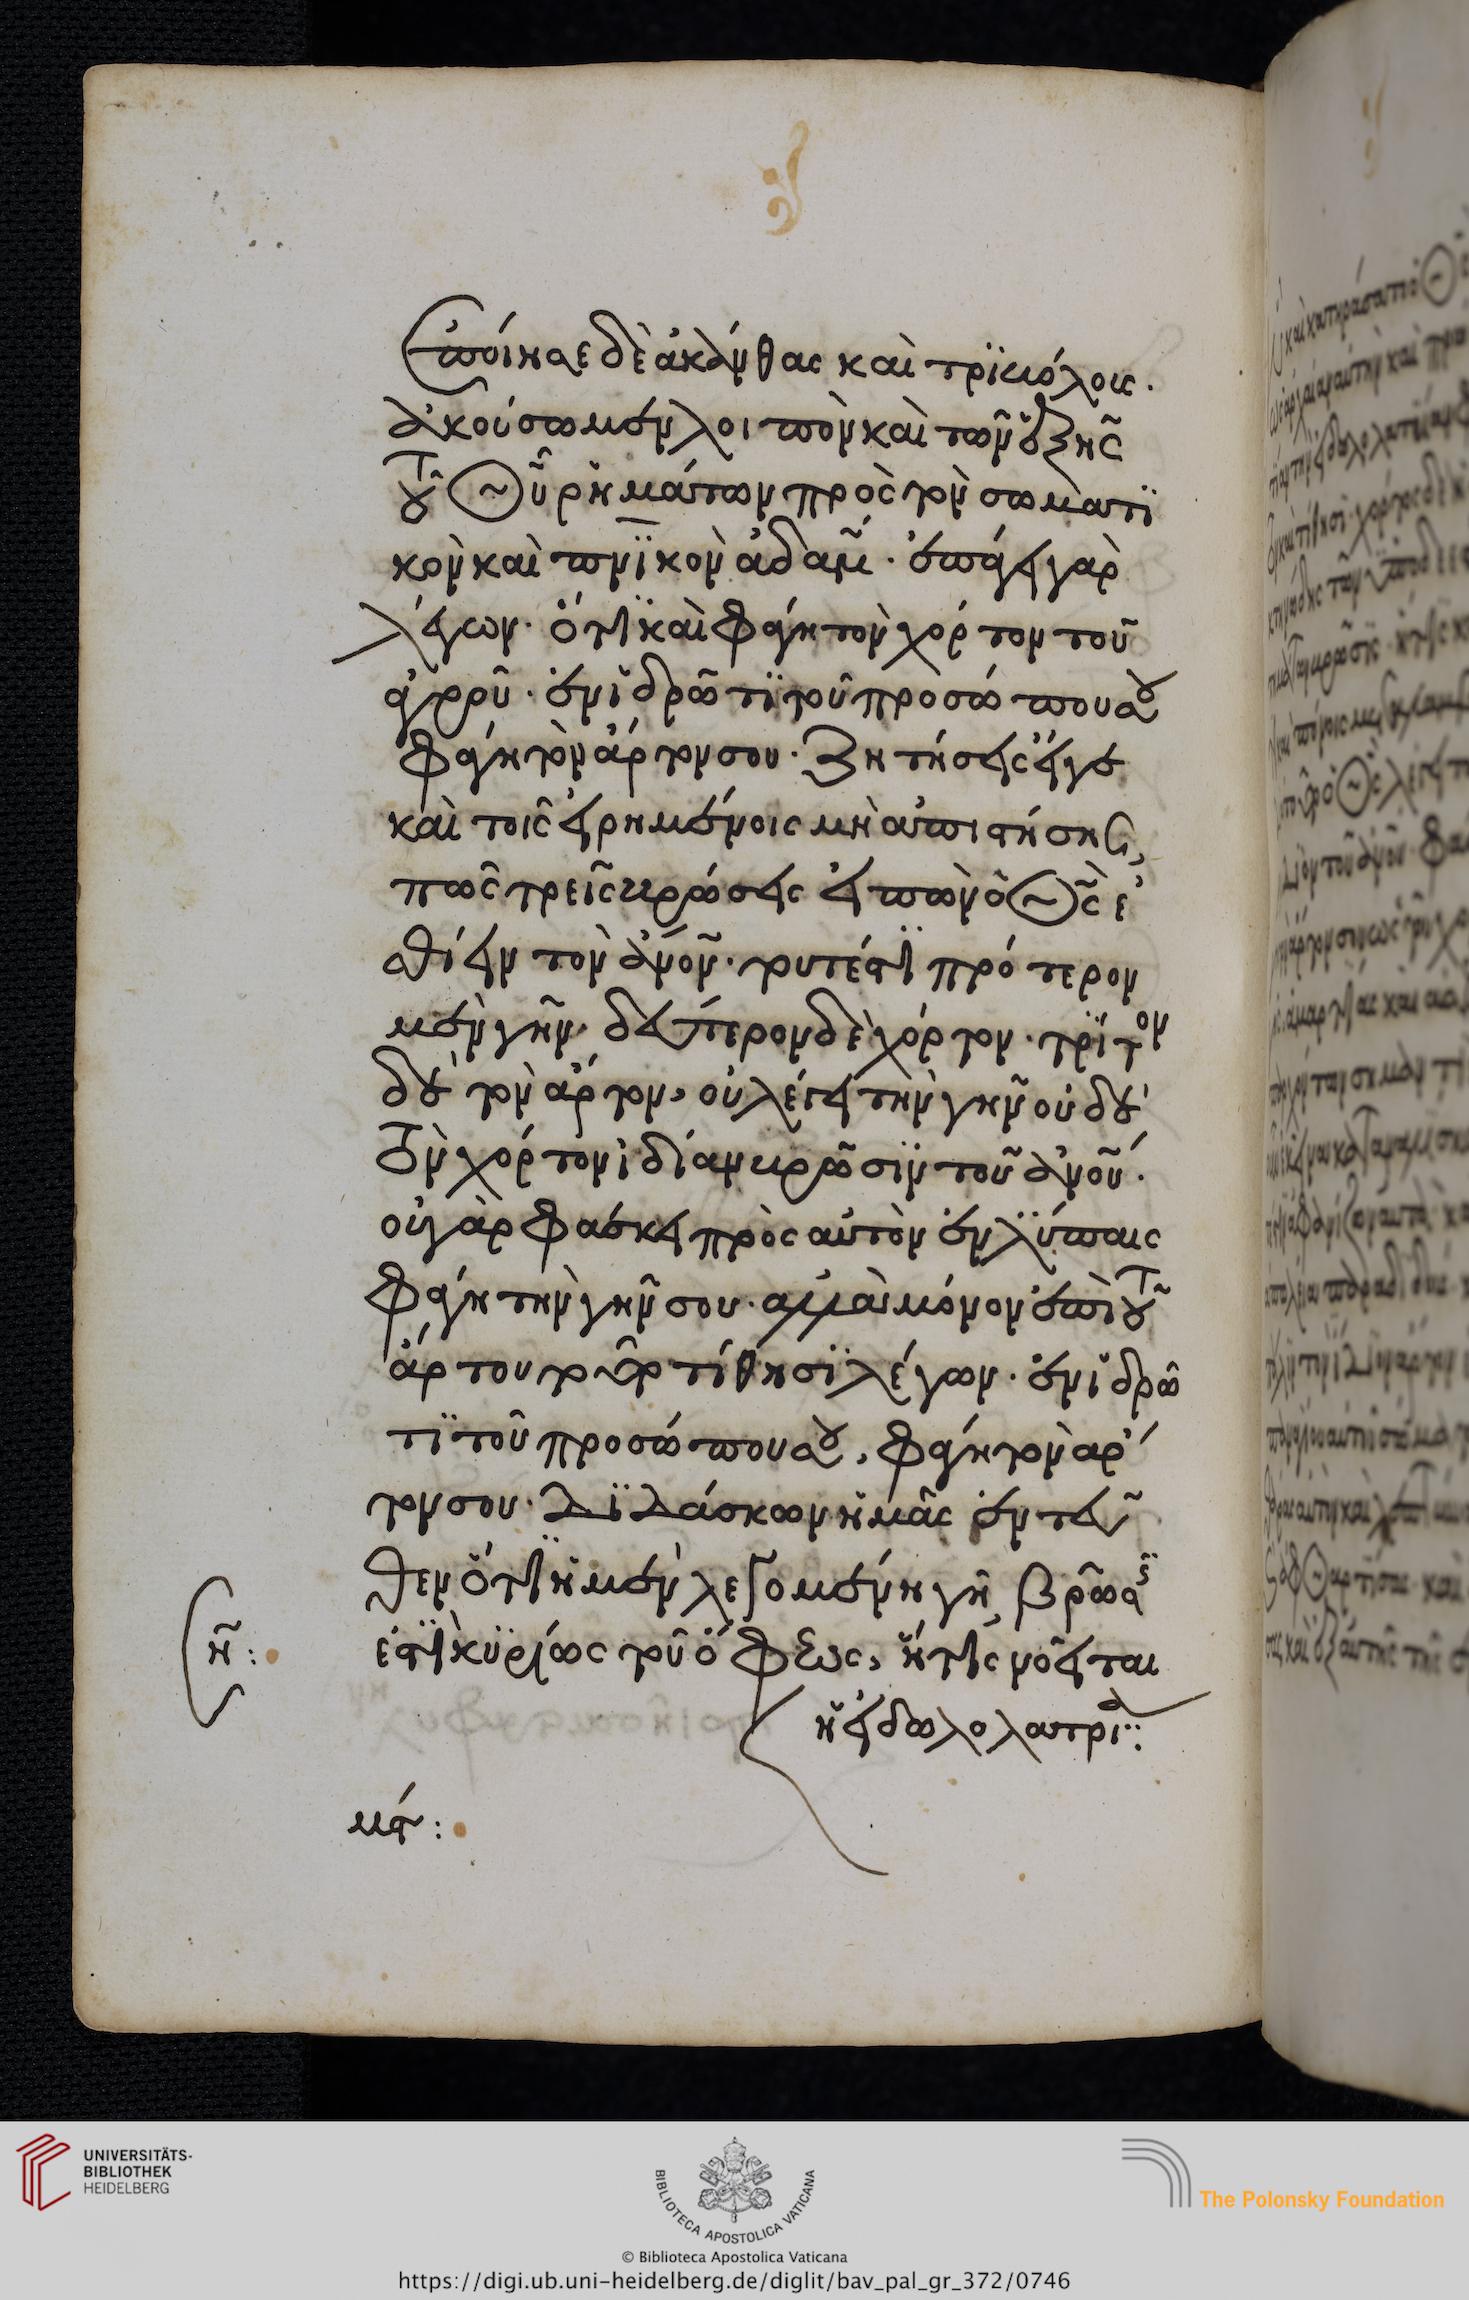 Ἐποίησε δὲ ἀκάνθας καὶ τριβόλους.
ἀκούσωμεν λοιπὸν καὶ τῶν ἑξῆς
τοῦ Θῦ ῥημάτων πρὸς τὸν σωματι
κὸν καὶ πνϊκὸν ἀδάμ. ἐπάγει γὰρ
λέγων. ὅτι καὶ φάγη τὸν χόρτον τοῦ
ἀγροῦ. ἐν ἱδρῶτι τοῦ προσώπου σου
φάγη τὸν ἄρτον σου. ζητήσεις
καὶ τοῖς εἰρημένοις μὴ ἀπιστήσης,
πῶς τρεῖς βρώσεις εἰπὼν ὁ Θς ἐ
σθίειν τὸν ἄνον. τουτέστι πρότερον
μὲν γῆν. δεύτερον δὲ χόρτον. τρίτον
δὲ τὸν ἄρτον, οὐ λέγει τὴν γῆν οὐδὲ
τὸν χόρτον ἰδίαν βρῶσιν τοῦ ἀνου.
οὐ γὰρ φάσκει πρὸς αὐτὸν ἐν λύπαις
φάγη τὴν γῆν σου. ἀλλὰ μόνον ἐπὶ τοῦ
ἄρτου τοῦτο τίθησι λέγων. ἐν ἱδρῶ
τι τοῦ προσώπου σου, φάγη τὸν ἄρ
τον σου. διδάσκων ἡμᾶς ἐντεῦ
θεν ὅτι ἡ μὲν λεγομένη γῆ, βρῶσις
ἐστι κυρίως τοῦ ὄφεως, ἥτις νοεῖται
ἡ εἰδωλολατρία:
η:
μα:
UNIVERSITÄTS-
BIBLIOTHEK
HEIDELBERG
BIBLIOTECA APOSTOLICA VATICANA
The Polonsky Foundation
© Biblioteca Apostolica Vaticana
https://digi.ub.uni-heidelberg.de/diglit/bav_pal_gr_372/0746